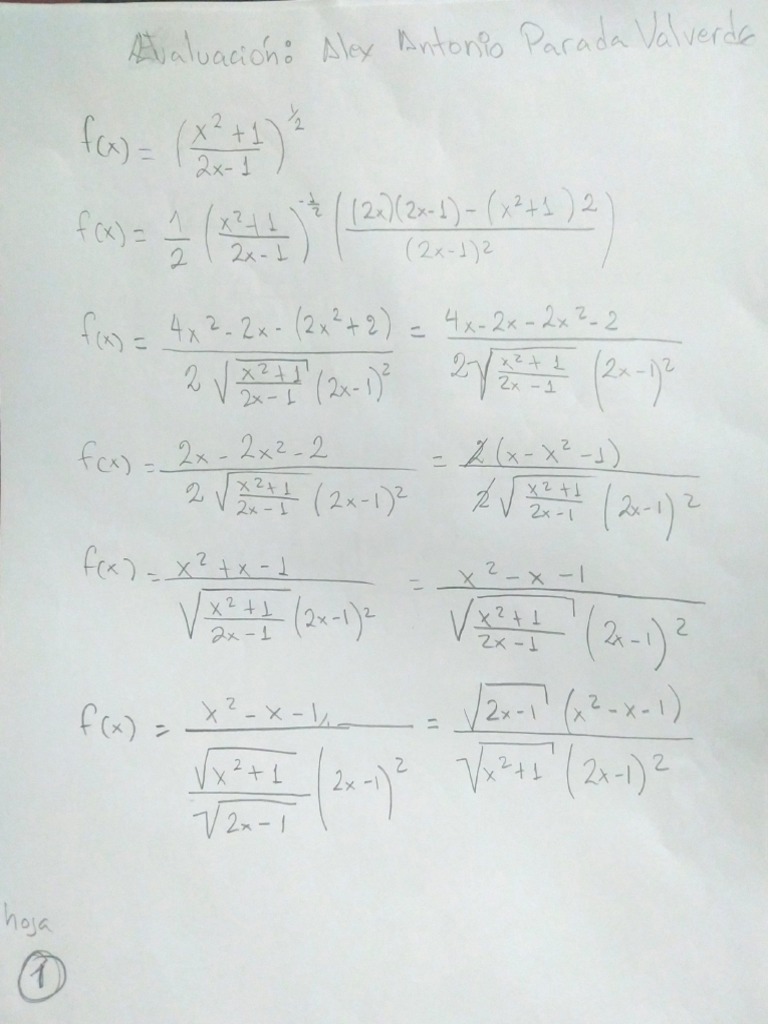 Evaluación: Alex Antonio Parada Valverde
f(x) = ((x² + 1)/(2x - 1))^(1/2)
f(x) = 1/2 ((x² + 1)/(2x - 1))^(-1/2) (((2x)(2x-1) - (x² + 1) 2)/(2x-1)²)
f(x) = (4x² - 2x - (2x² + 2))/(2 √((x² + 1)/(2x - 1)) (2x-1)²) = (4x - 2x - 2x² - 2)/(2√((x² + 1)/(2x - 1)) (2x-1)²)
f(x) = (2x - 2x² - 2)/(2 √((x² + 1)/(2x - 1)) (2x-1)²) = (2(x - x² - 1))/(2√((x² + 1)/(2x - 1)) (2x-1)²)
f(x) = (x² + x - 1)/(√((x² + 1)/(2x - 1)) (2x-1)²) = (x² - x - 1)/(√((x² + 1)/(2x - 1)) (2x-1)²)
f(x) = (x² - x - 1)/((√(x² + 1)/√(2x - 1)) (2x-1)²) = (√(2x-1) (x² - x - 1))/(√(x² + 1) (2x-1)²)
hoja
1